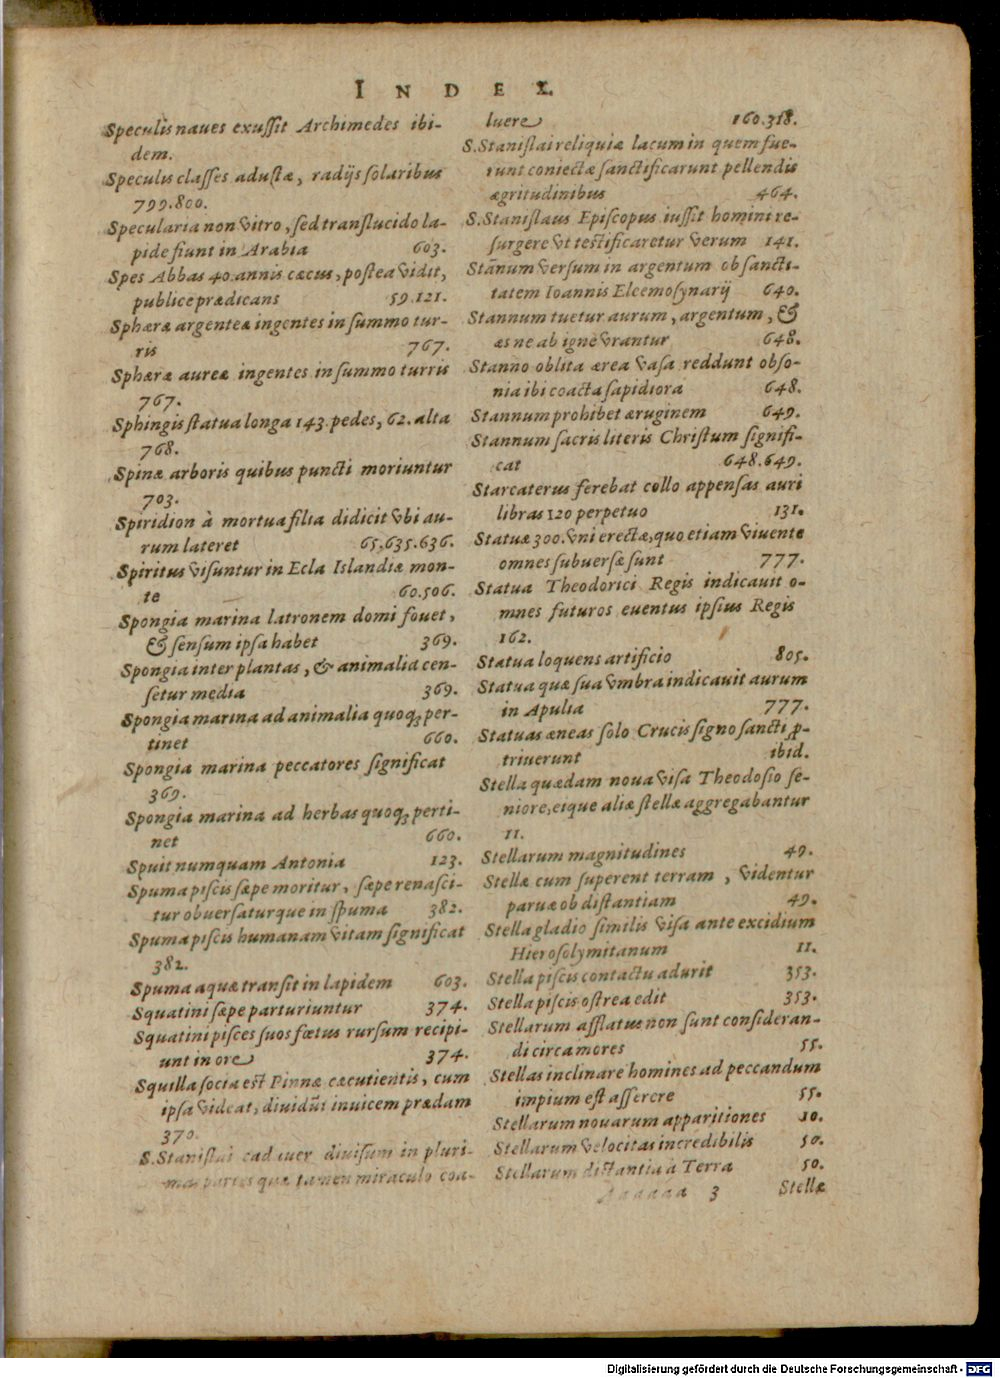 INDEX.
Speculis naues exussit Archimedes ibi-
dem.
Speculis classes adustæ, radijs solaribus
799.800.
Specularia non vitro, sed translucido la-
pide fiunt in Arabia 603.
Spes Abbas 40. annis cæcus, postea vidit,
publice prædicans 59.121.
Sphæræ argenteæ ingentes in summo tur-
ris 767.
Sphæræ aureæ ingentes in summo turris
767.
Sphingis statua longa 143. pedes, 62. alta
768.
Spinæ arboris quibus puncti moriuntur
703.
Spiridion à mortua filia didicit vbi au-
rum lateret 65.635.636.
Spiritus visuntur in Ecla Islandiæ mon-
te 60.506.
Spongia marina latronem domi fouet,
& sensum ipsa habet 369.
Spongia inter plantas, & animalia cen-
setur media 369.
Spongia marina ad animalia quoqꝫ per-
tinet 660.
Spongia marina peccatores significat
369.
Spongia marina ad herbas quoqꝫ perti-
net 660.
Spuit numquam Antonia 123.
Spuma piscis sæpe moritur, sæpe renasci-
tur obuersaturque in spuma 382.
Spuma piscis humanam vitam significat
382.
Spuma aquæ transit in lapidem 603.
Squatini sæpe parturiuntur 374.
Squatini pisces suos fœtus rursum recipi-
unt in ore 374.
Squilla socia est Pinnæ cæcutientis, cum
ipsa videat, diuidũt inuicem prædam
370.
S. Stanislai cadauer diuisum in pluri-
mas partes quæ tamen miraculo coa-
luere 160.318.
S. Stanislai reliquiæ lacum in quem fue-
runt coniectæ sanctificarunt pellendis
ægritudinibus 464.
S. Stanislaus Episcopus iussit homini re-
surgere vt testificaretur verum 141.
Stãnum versum in argentum ob sancti-
tatem Ioannis Eleemosynarij 640.
Stannum tuetur aurum, argentum, &
æs ne ab igne vrantur 648.
Stanno oblita ærea vasa reddunt obso-
nia ibi coacta sapidiora 648.
Stannum prohibet æruginem 649.
Stannum sacris literis Christum signifi-
cat 648.649.
Starcaterus ferebat collo appensas auri
libras 120 perpetuo 131.
Statuæ 300. vni erectæ, quo etiam viuente
omnes subuersæ sunt 777.
Statua Theodorici Regis indicauit o-
mnes futuros euentus ipsius Regis
162.
Statua loquens artificio 805.
Statua quæ sua vmbra indicauit aurum
in Apulia 777.
Statuas æneas solo Crucis signo sancti ꝓ-
triuerunt ibid.
Stella quædam noua visa Theodosio se-
niore, eique aliæ stellæ aggregabantur
11.
Stellarum magnitudines 49.
Stellæ cum superent terram, videntur
paruæ ob distantiam 49.
Stella gladio similis visa ante excidium
Hierosolymitanum 11.
Stella piscis contactu adurit 353.
Stella piscis ostrea edit 353.
Stellarum afflatus non sunt consideran-
di circa mores 55.
Stellas inclinare homines ad peccandum
impium est asserere 55.
Stellarum nouarum apparitiones 10.
Stellarum velocitas incredibilis 50.
Stellarum distantia à Terra 50.
Aaaaaa 3 Stellæ
Digitalisierung gefördert durch die Deutsche Forschungsgemeinschaft - DFG